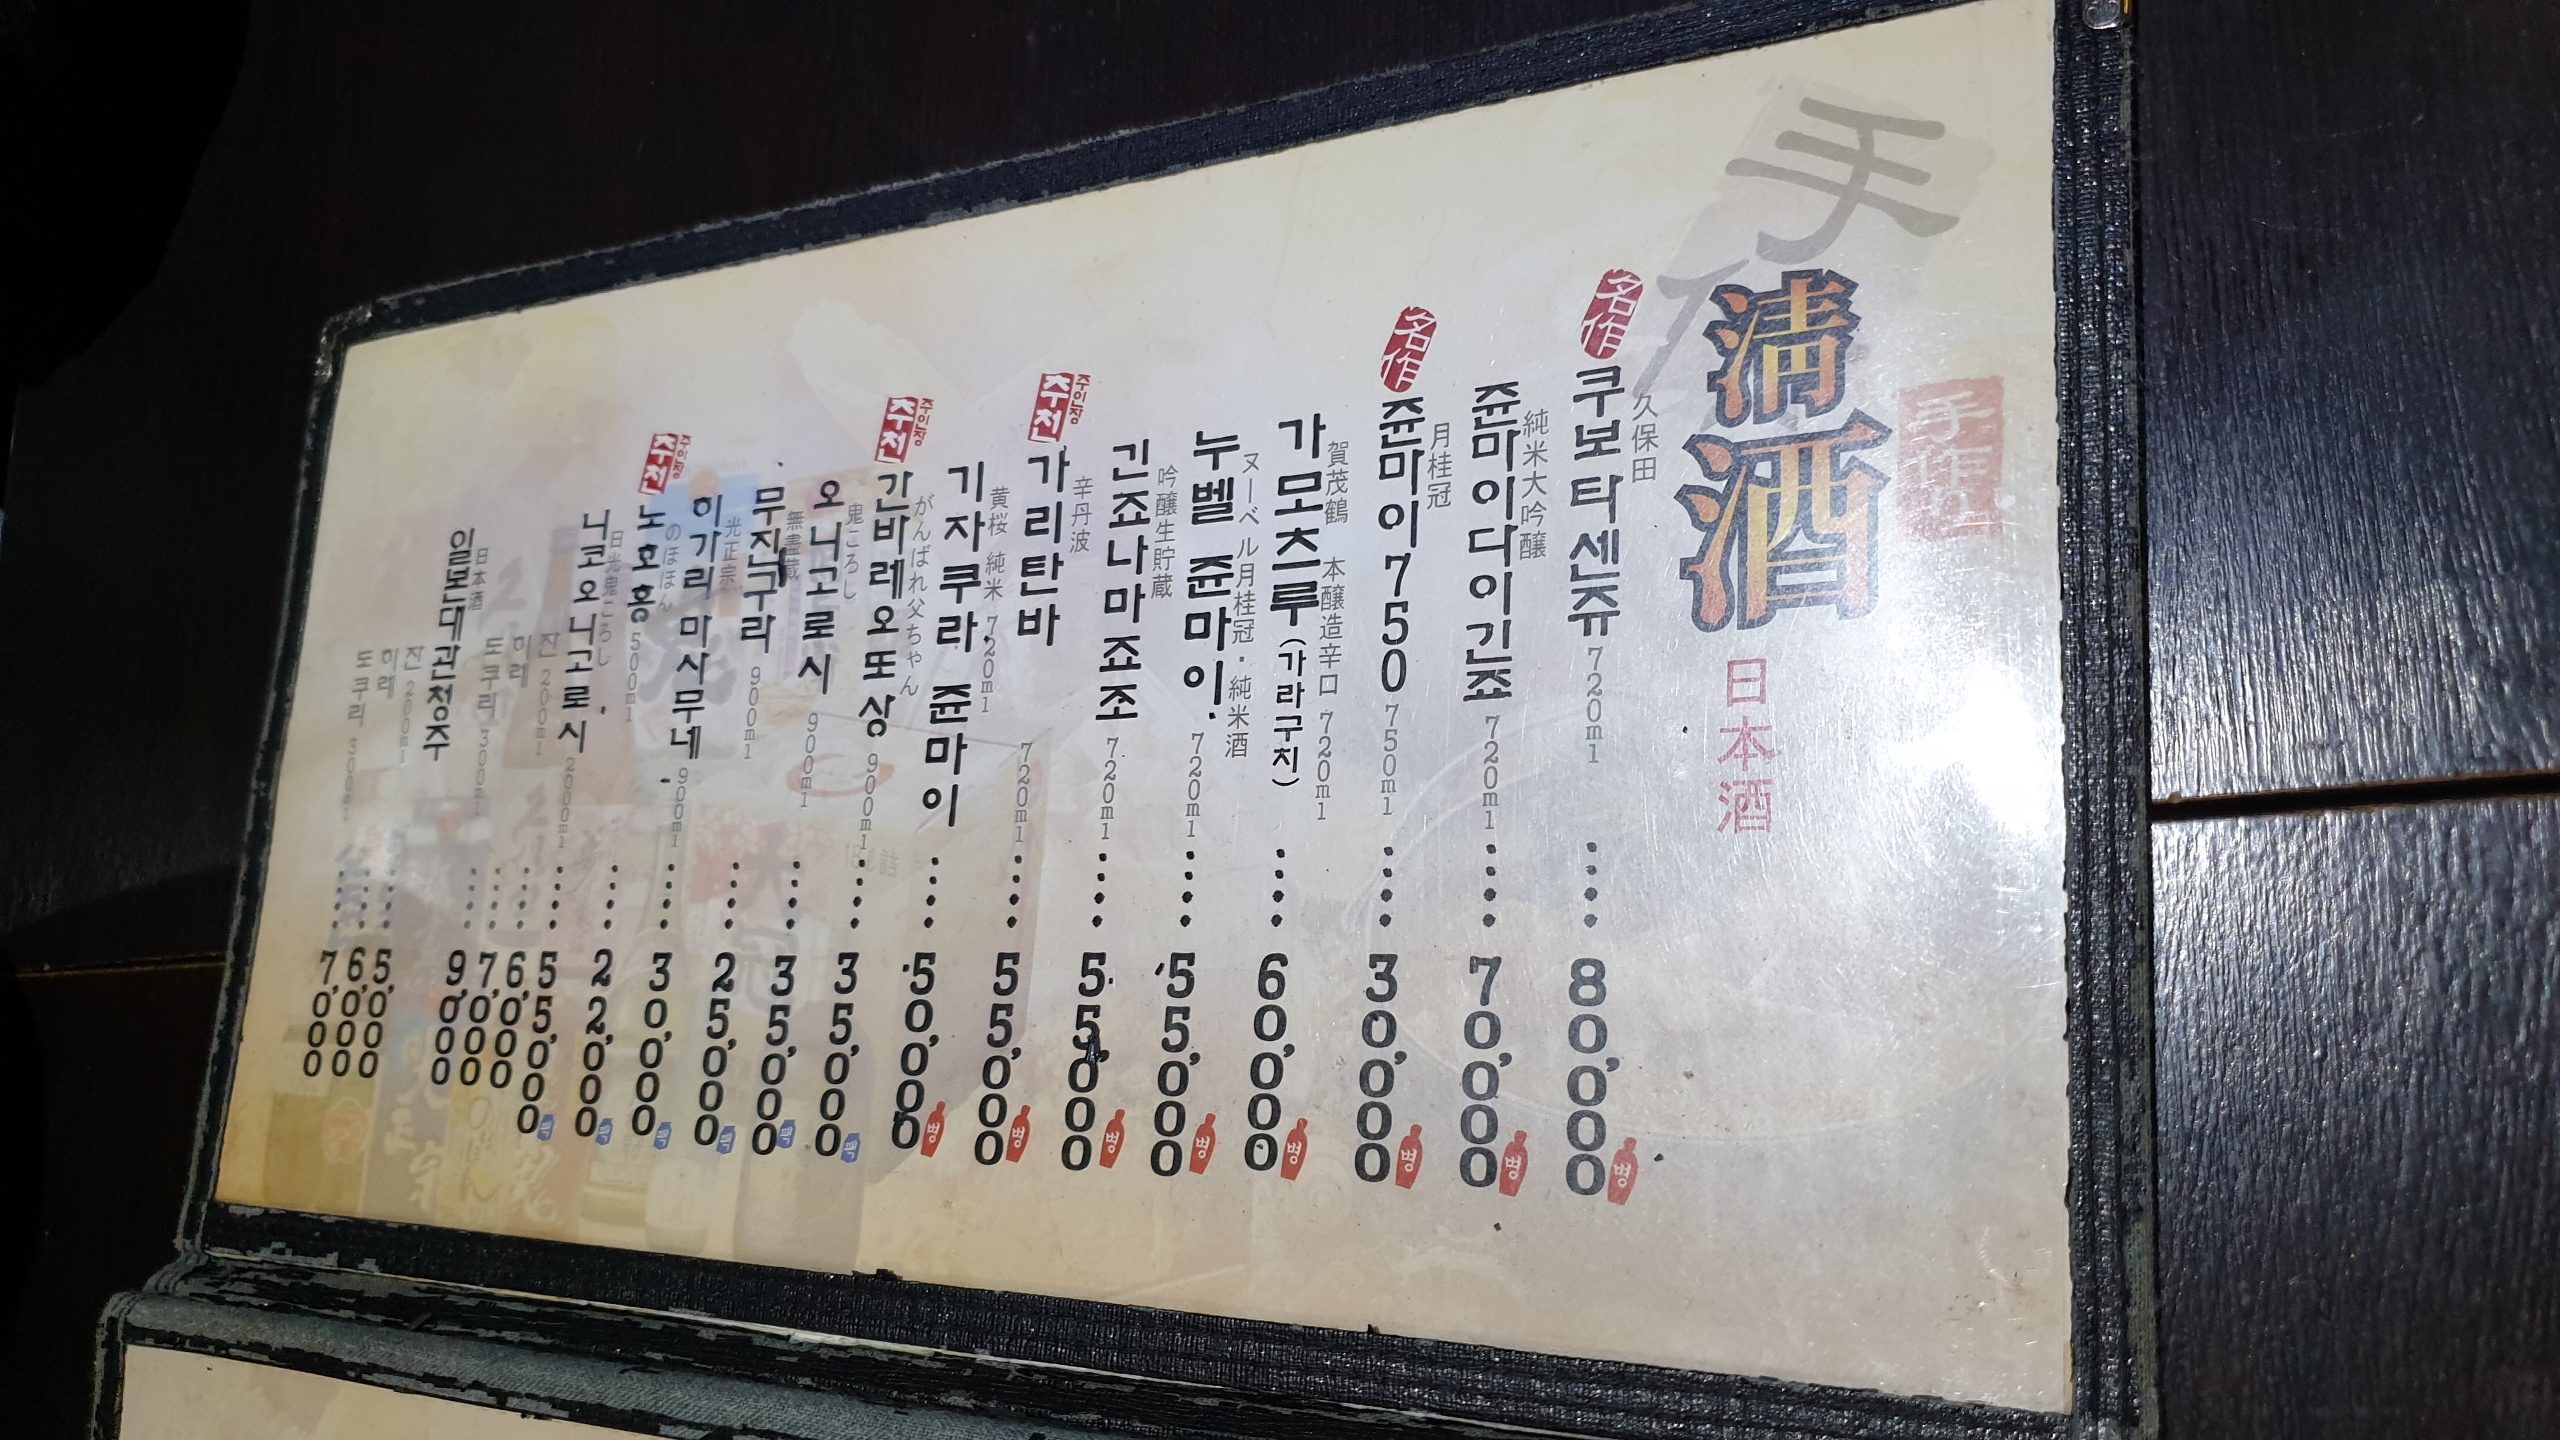 手作
手作り
淸酒
日本酒
名作
久保田
쿠보타센쥬 720ml 80,000 병
純米大吟醸
쥰마이다이긴죠 720ml 70,000 병
名作
月桂冠
쥰마이750 750ml 30,000 병
賀茂鶴 本醸造辛口 720ml
가모츠루(가라구치) 60,000 병
ヌーベル月桂冠・純米酒
누벨 쥰마이 720ml 55,000 병
吟醸生貯蔵
긴죠나마죠조 720ml 55,000 병
주인장
추천
辛丹波
가리탄바 720ml 55,000 병
黄桜 純米 720ml
기자쿠라 쥰마이 50,000 병
주인장
추천
がんばれ父ちゃん
간바레오또상 900ml 35,000 팩
鬼ころし
오니고로시 900ml 35,000 팩
無盡蔵
무진구라 900ml 25,000 팩
光正宗
히가리마사무네 900ml 30,000 팩
주인장
추천
のほほん
노호홍 500ml 22,000 팩
日光鬼ころし
니코오니고로시 2000ml 55,000 팩
잔 200ml 6,000
히레 7,000
도쿠리 300ml 9,000
日本酒
일본대관청주
잔 200ml 5,000
히레 6,000
도쿠리 300ml 7,000